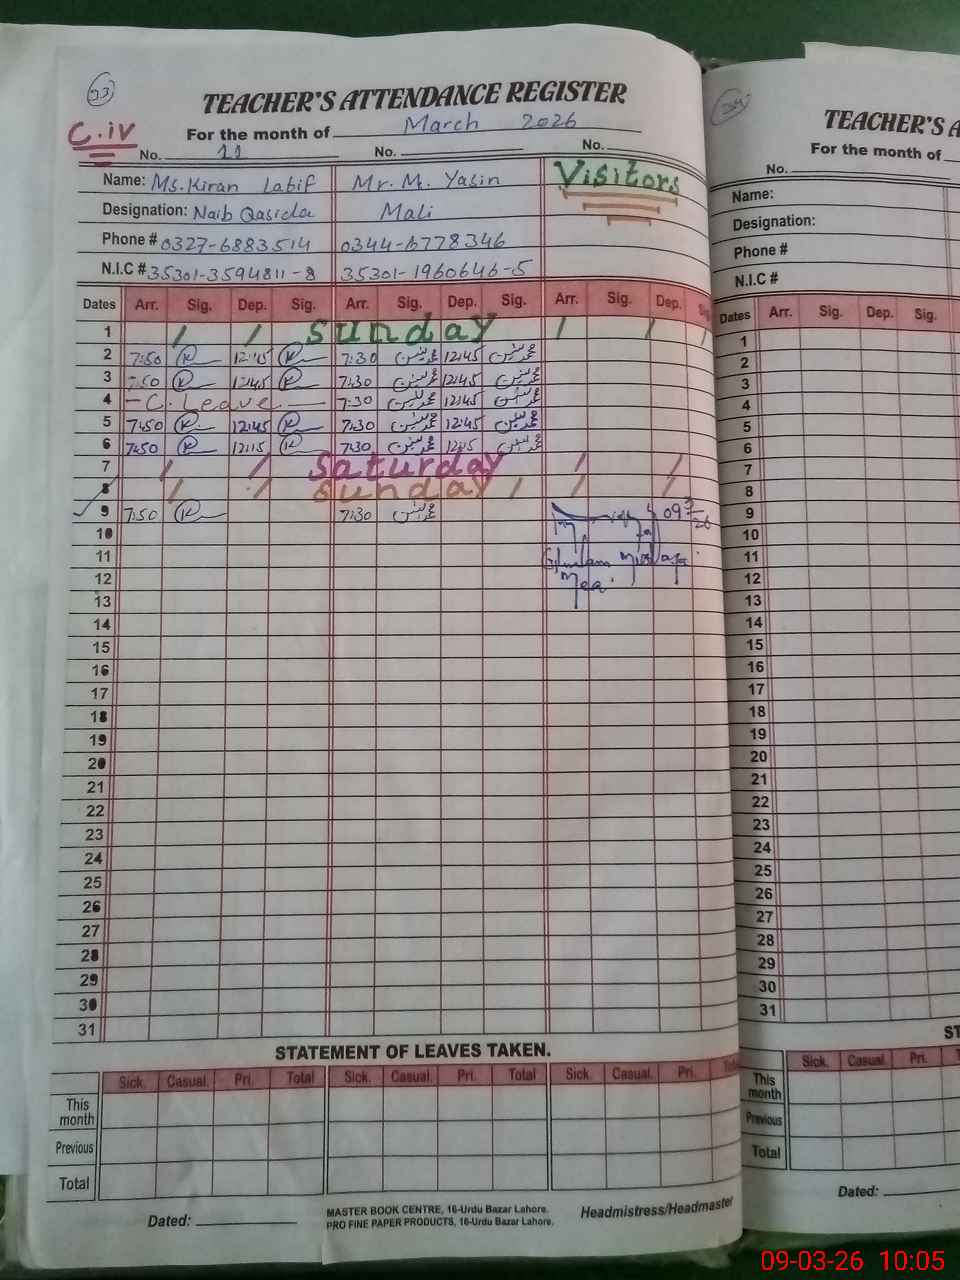 23
TEACHER'S ATTENDANCE REGISTER
C.iv
For the month of March 2026
No. 11 No. No.
Name: Ms. Kiran Latif Mr. M. Yasin Visitors
Designation: Naib Qasida Mali
Phone # 0327-6883514 0344-6778346
N.I.C # 35301-3594811-8 35301-1960646-5
Dates Arr. Sig. Dep. Sig. Arr. Sig. Dep. Sig. Arr. Sig. Dep. Sig
1 / / Sunday / /
2 7:50 12:45 7:30 محمد یٰسین 12:45 محمد یٰسین
3 7:50 12:45 7:30 محمد یٰسین 12:45 محمد یٰسین
4 - C. Leave 7:30 محمد یٰسین 12:45 محمد یٰسین
5 7:50 12:45 7:30 محمد یٰسین 12:45 محمد یٰسین
6 7:50 12:15 7:30 محمد یٰسین 12:15 محمد یٰسین
7 / / Saturday / /
8 / / Sunday / / /
9 7:50 7:30 محمد یٰسین 09/3/26
10
11 Ghulam
12 Mea
13
14
15
16
17
18
19
20
21
22
23
24
25
26
27
28
29
30
31
STATEMENT OF LEAVES TAKEN.
Sick. Casual. Pri. Total Sick. Casual. Pri. Total Sick. Casual. Pri. Total
This month
Previous
Total
Dated:
MASTER BOOK CENTRE, 16-Urdu Bazar Lahore.
PRO FINE PAPER PRODUCTS, 16-Urdu Bazar Lahore.
Headmistress/Headmaster
TEACHER'S A
For the month of
No.
Name:
Designation:
Phone #
N.I.C #
Dates Arr. Sig. Dep. Sig.
1
2
3
4
5
6
7
8
9
10
11
12
13
14
15
16
17
18
19
20
21
22
23
24
25
26
27
28
29
30
31
ST
Sick. Casual. Pri. T
This month
Previous
Total
Dated:
09-03-26 10:05